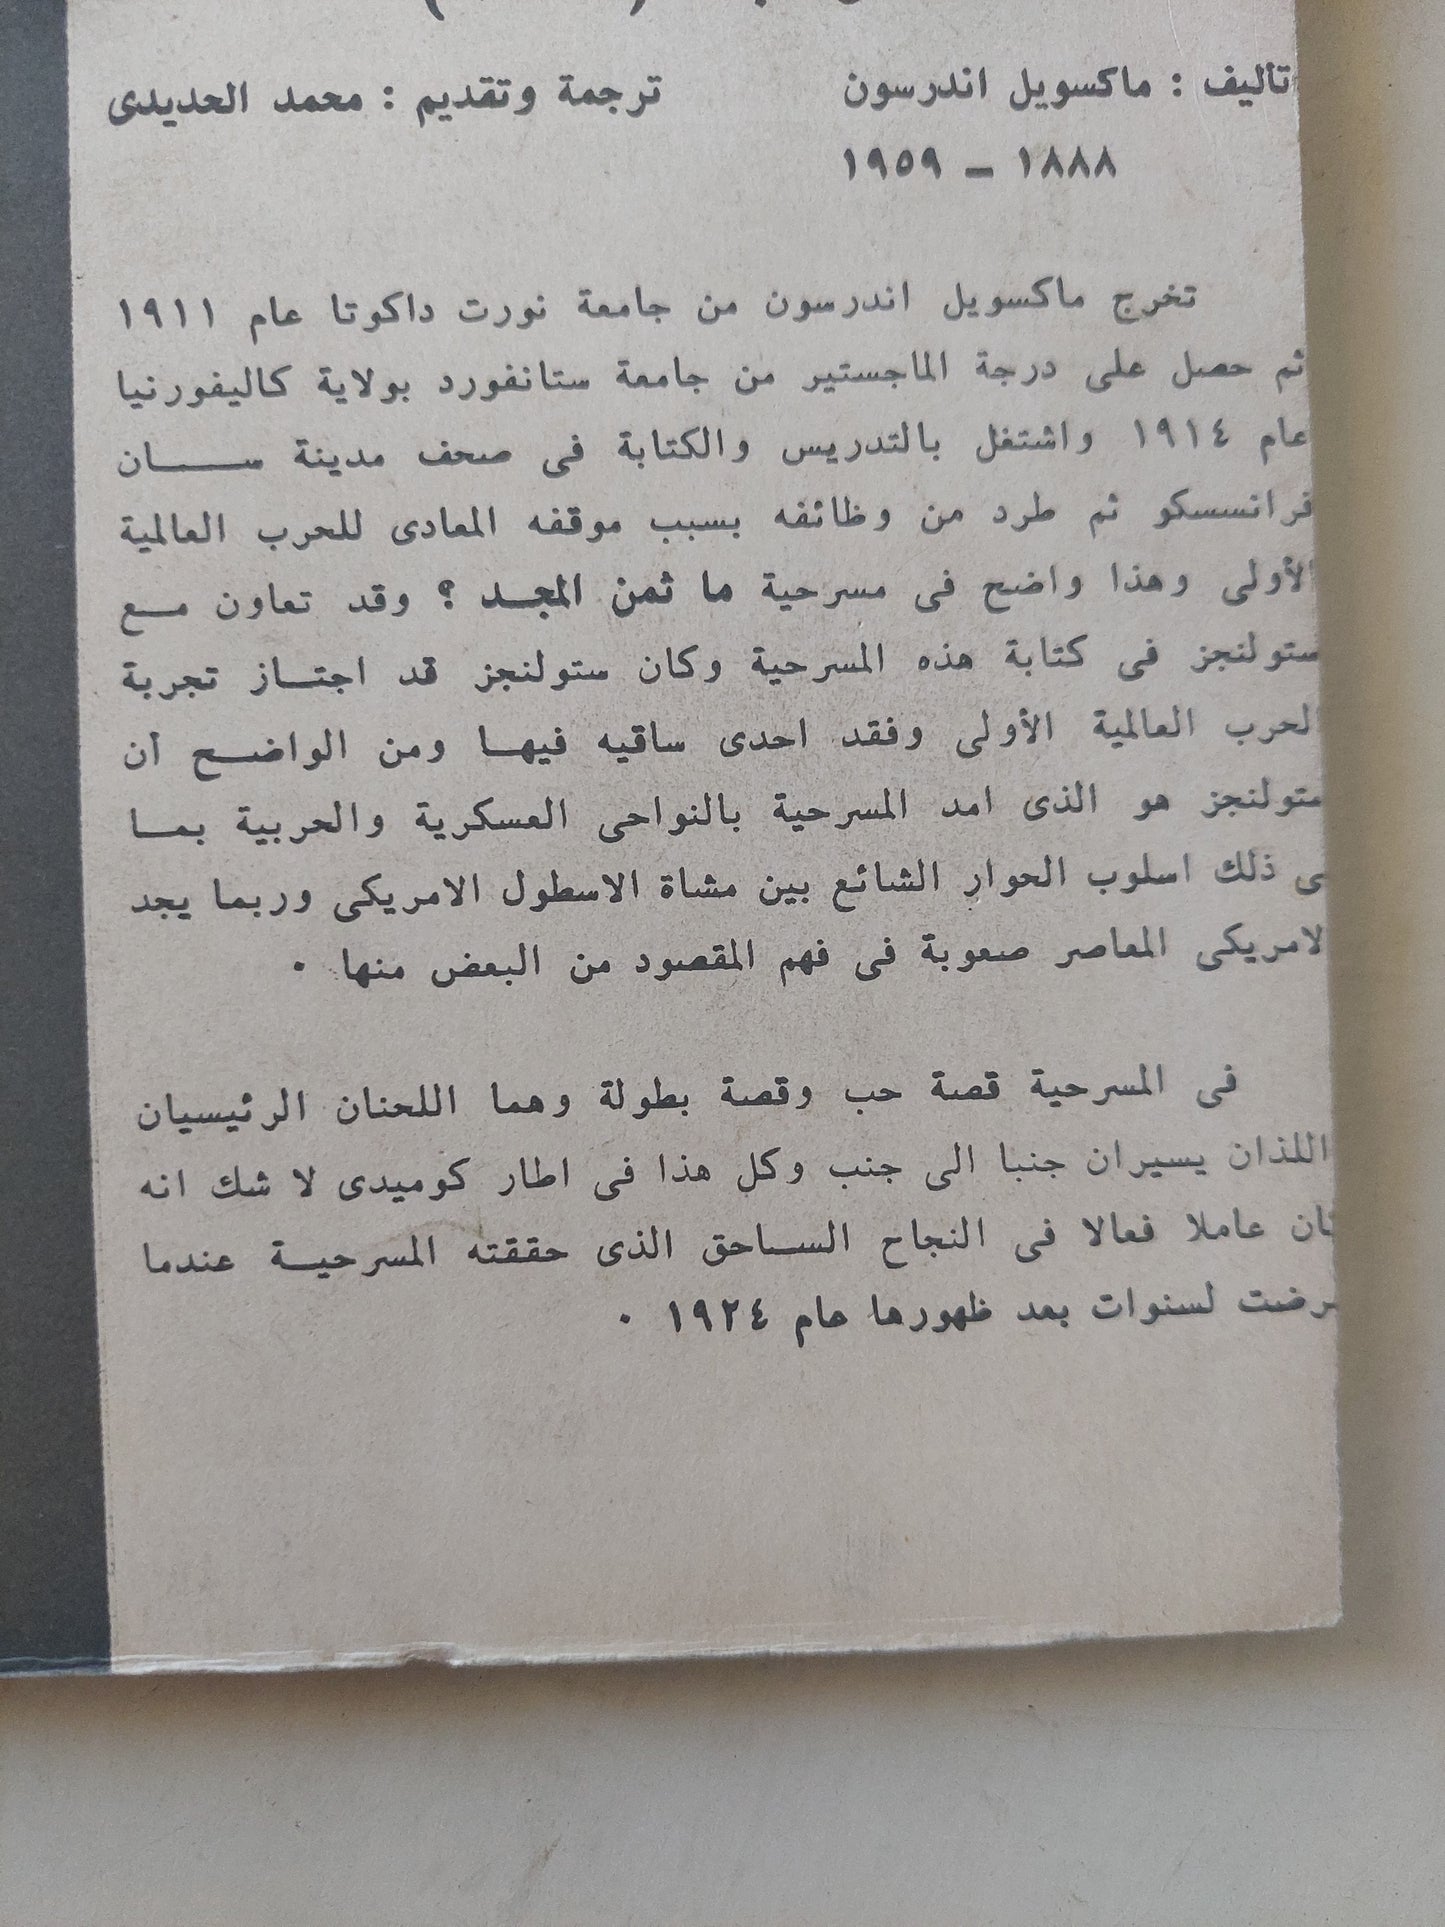 تأليف : ماكسويل اندرسون ترجمة وتقديم : محمد الحديدى
١٨٨٨ – ١٩٥٩
تخرج ماكسويل اندرسون من جامعة نورت داكوتا عام ١٩١١
ثم حصل على درجة الماجستير من جامعة ستانفورد بولاية كاليفورنيا
عام ١٩١٤ واشتغل بالتدريس والكتابة فى صحف مدينة ســـان
فرانسسكو ثم طرد من وظائفه بسبب موقفه المعادى للحرب العالمية
الأولى وهذا واضح فى مسرحية ما ثمن المجـد ؟ وقد تعاون مـع
ستولنجز فى كتابة هذه المسرحية وكان ستولنجز قد اجتـاز تجربة
لحرب العالمية الأولى وفقد احدى ساقيه فيهـا ومن الواضـح أن
ستولنجز هو الذى امد المسرحية بالنواحى العسكرية والحربية بمـا
ى ذلك اسلوب الحوار الشائع بين مشاة الاسطول الامريكى وربما يجد
لامريكى المعاصر صعوبة فى فهم المقصود من البعض منها .
فى المسرحية قصة حب وقصة بطولة وهما اللحنان الرئيسيان
اللذان يسيران جنبا الى جنب وكل هذا فى اطار كوميدى لا شك انه
كان عاملا فعالا فى النجاح السـاحق الذى حققته المسرحيـة عندما
رضت لسنوات بعد ظهورها عام ١٩٢٤ .